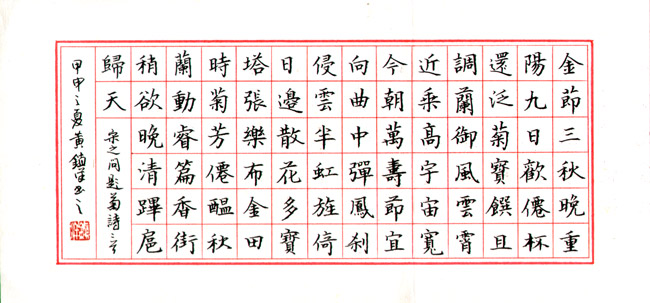 金節三秋晚重
陽九日歡僊杯
還泛菊寶饌且
調蘭御風雲霄
近乘高宇宙寬
今朝萬壽節宜
向曲中彈鳳刹
侵雲半虹旌倚
日邊散花多寶
塔張樂布金田
時菊芳僊醞秋
蘭動睿篇香街
稍欲晚清蹕扈
歸天
宋之问题菊詩二首
甲申之夏黄鎮书之